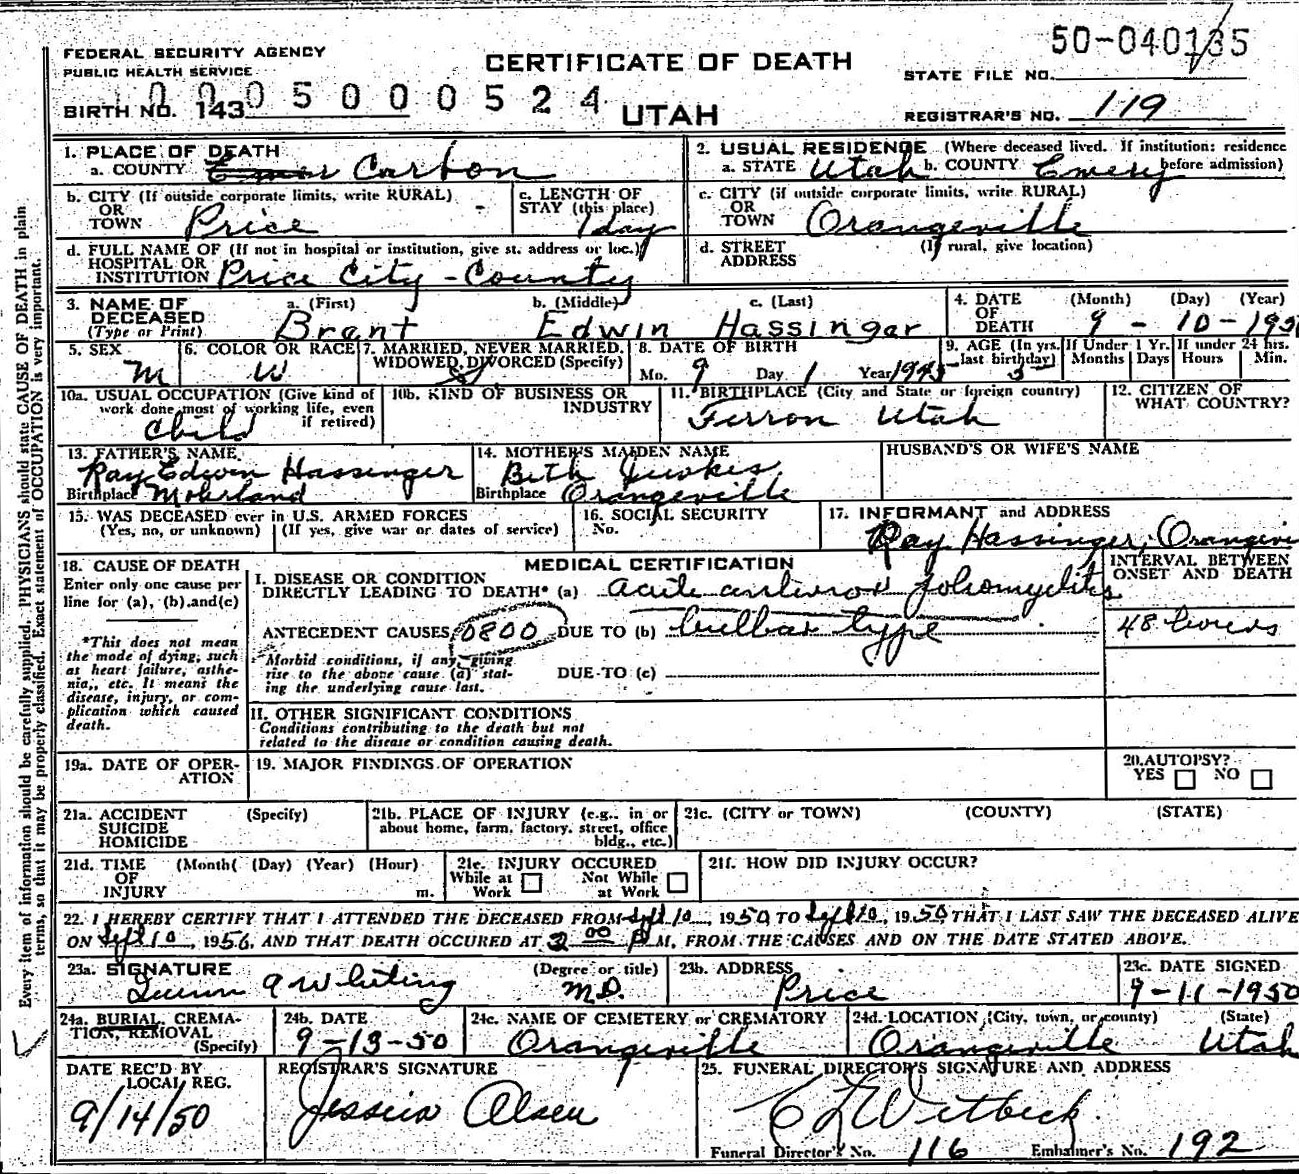 50-040135
FEDERAL SECURITY AGENCY
PUBLIC HEALTH SERVICE
CERTIFICATE OF DEATH
STATE FILE NO.
BIRTH NO. 143
0005000524
UTAH
REGISTRAR'S NO. 119
1. PLACE OF DEATH
a. COUNTY Carbon
2. USUAL RESIDENCE (Where deceased lived. If institution: residence before admission)
a. STATE Utah b. COUNTY Emery
b. CITY (If outside corporate limits, write RURAL)
OR
TOWN Price
c. LENGTH OF
STAY (this place)
1 day
c. CITY (if outside corporate limits, write RURAL)
OR
TOWN Orangeville
d. FULL NAME OF (If not in hospital or institution, give st. address or loc.)
HOSPITAL OR
INSTITUTION Price City - County
d. STREET (If rural, give location)
ADDRESS
3. NAME OF
DECEASED
(Type or Print)
a. (First) b. (Middle) c. (Last)
Brant Edwin Hassinger
4. DATE (Month) (Day) (Year)
OF
DEATH 9 - 10 - 195
5. SEX
M
6. COLOR OR RACE
W
7. MARRIED, NEVER MARRIED,
WIDOWED, DIVORCED (Specify)
S
8. DATE OF BIRTH
Mo. 9 Day 1 Year 1945
9. AGE (In yrs. last birthday)
5
If Under 1 Yr. Months Days
If under 24 hrs. Hours Min.
10a. USUAL OCCUPATION (Give kind of
work done most of working life, even
if retired)
Child
10b. KIND OF BUSINESS OR
INDUSTRY
11. BIRTHPLACE (City and State or foreign country)
Ferron Utah
12. CITIZEN OF
WHAT COUNTRY?
13. FATHER'S NAME
Ray Edwin Hassinger
Birthplace Mohrland
14. MOTHER'S MAIDEN NAME
Beth Jewkes
Birthplace Orangeville
HUSBAND'S OR WIFE'S NAME
15. WAS DECEASED ever in U.S. ARMED FORCES
(Yes, no, or unknown) (If yes, give war or dates of service)
16. SOCIAL SECURITY
No.
17. INFORMANT and ADDRESS
Ray Hassinger, Orangevi
18. CAUSE OF DEATH
Enter only one cause per
line for (a), (b), and (c)
*This does not mean
the mode of dying, such
as heart failure, asthe-
nia,, etc. It means the
disease, injury, or com-
plication which caused
death.
MEDICAL CERTIFICATION
INTERVAL BETWEEN
ONSET AND DEATH
I. DISEASE OR CONDITION
DIRECTLY LEADING TO DEATH* (a) acute anterior poliomyelitis
ANTECEDENT CAUSES 0800 DUE TO (b) bulbar type
48 hours
Morbid conditions, if any, giving
rise to the above cause (a) stat-
ing the underlying cause last.
DUE TO (c)
II. OTHER SIGNIFICANT CONDITIONS
Conditions contributing to the death but not
related to the disease or condition causing death.
19a. DATE OF OPER-
ATION
19. MAJOR FINDINGS OF OPERATION
20. AUTOPSY?
YES NO
21a. ACCIDENT (Specify)
SUICIDE
HOMICIDE
21b. PLACE OF INJURY (e.g., in or
about home, farm, factory, street, office
bldg., etc.)
21c. (CITY or TOWN) (COUNTY) (STATE)
21d. TIME (Month( (Day) (Year) (Hour)
OF
INJURY m.
21e. INJURY OCCURED
While at Not While
Work at Work
21f. HOW DID INJURY OCCUR?
22. I HEREBY CERTIFY THAT I ATTENDED THE DECEASED FROM Sept 10, 1950 TO Sept 10, 1950 THAT I LAST SAW THE DECEASED ALIVE
ON Sept 10, 1950, AND THAT DEATH OCCURED AT 2 00 P M, FROM THE CAUSES AND ON THE DATE STATED ABOVE.
23a. SIGNATURE (Degree or title)
Quinn A Whiting M.D.
23b. ADDRESS
Price
23c. DATE SIGNED
9-11-1950
24a. BURIAL, CREMA-
TION, REMOVAL
(Specify)
24b. DATE
9-13-50
24c. NAME OF CEMETERY or CREMATORY
Orangeville
24d. LOCATION (City, town, or county) (State)
Orangeville Utah
DATE REC'D BY
LOCAL REG.
9/14/50
REGISTRAR'S SIGNATURE
Jessica Olsen
25. FUNERAL DIRECTOR'S SIGNATURE AND ADDRESS
C L Witbeck
Funeral Director's No. 116 Embalmer's No. 192
Every item of information should be carefully supplied. PHYSICIANS should state CAUSE OF DEATH in plain
terms, so that it may be properly classified. Exact statement of OCCUPATION is very important.